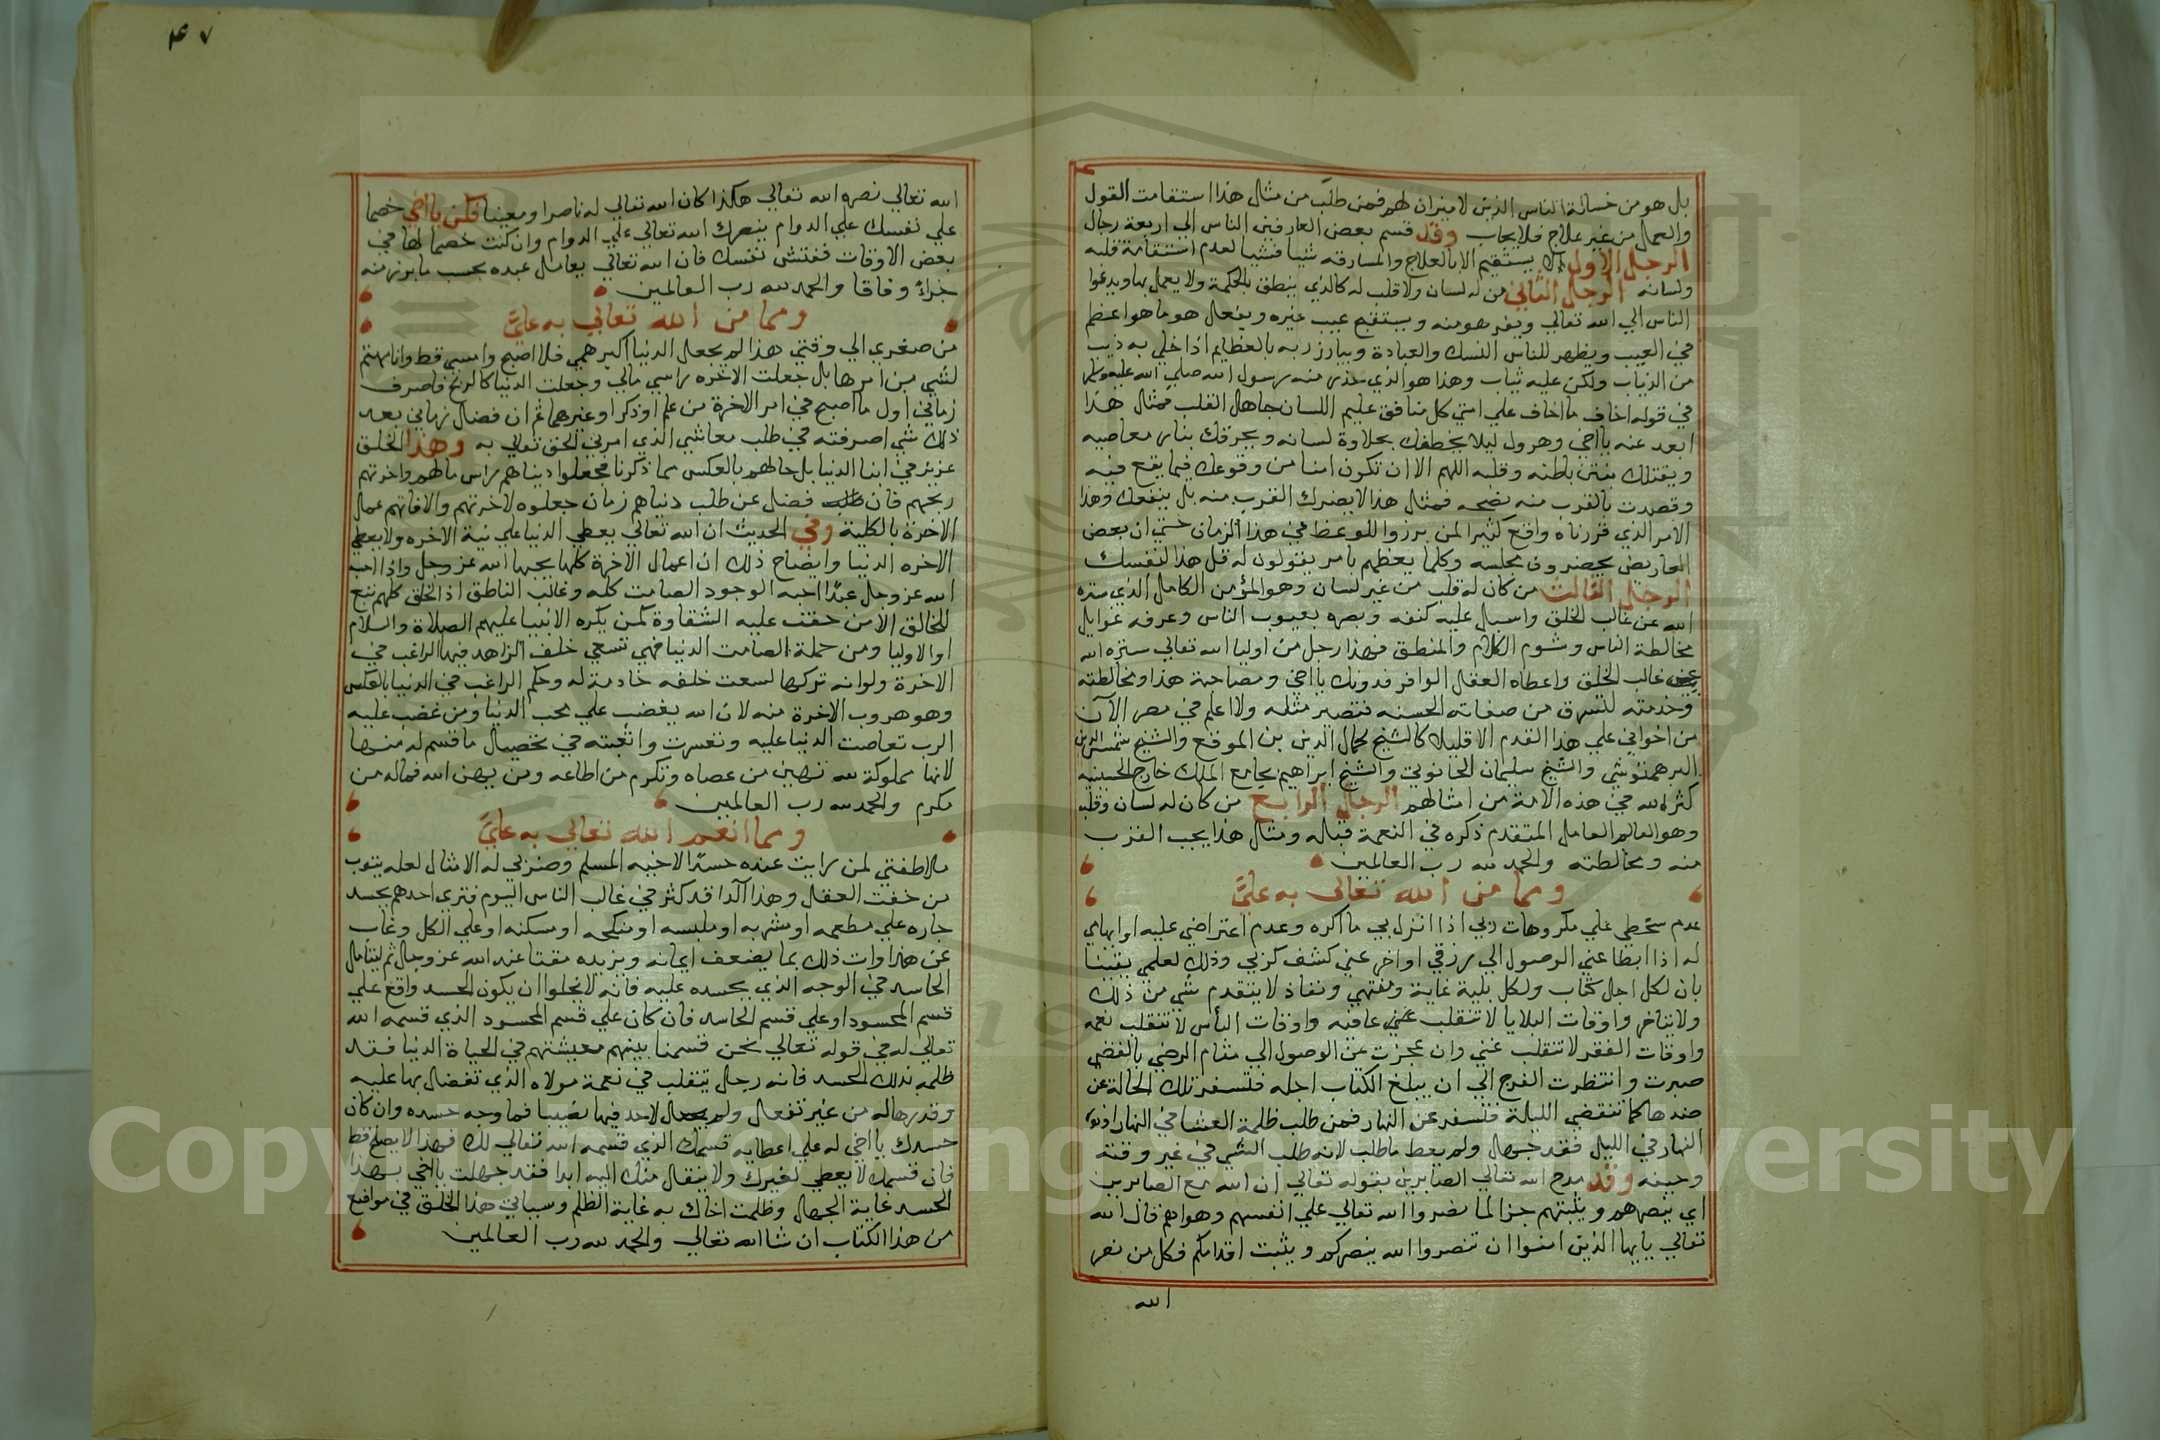 بل هو من خسالة الناس الذين لا ميزان لهم فمن طلب من مثال هذا استقامت القول
والعمل من غير علاج فلا يجاب وقد قسم بعض العارفين الناس الي اربعة رجال
الرجل الاول لا يستقيم الا بالعلاج والمسارقه شيا فشيا لعدم استقامة قلبه
ولسانه الرجل الثاني من له لسان ولا قلب له كالذي ينطق بالحكمة ولا يعمل بها ويدعوا
الناس الي الله تعالي ويفر هو منه ويستقبح عيب غيره ويفعل هو ما هو اعظم
في العيب ويظهر للناس النسك والعبادة ويبارز ربه بالعظايم اذا خلي به ذيب
من الذياب ولكن عليه ثياب وهذا هو الذي حذر منه رسول الله صلي الله عليه وسلم
في قوله اخاف ما اخاف علي امتي كل منافق عليم اللسان جاهل القلب فمثال هذا
ابعد عنه يا اخي وهرول ليلا يخطفك بحلاوة لسانه ويحرقك بنار معاصيه
ويقتلك بنتن باطنه وقلبه اللهم الا ان تكون امنا من وقوعك فيما يقع فيه
وقصدت بالقرب منه نصحه فمثال هذا لا يضرك القرب منه بل ينفعك وهذا
الامر الذي قررناه واقع كثيرا لمن برزوا للوعظ في هذا الزمان حتي ان بعض
يحضرون مجلسه وكلما يعظهم بامر يقولون له قل هذا لنفسك
الرجل الثالث من كان له قلب من غير لسان وهو المؤمن الكامل الذي ستره
الله عن غالب الخلق واسبل عليه كنفه وبصره بعيوب الناس وعرفه غوايل
مخالطة الناس وشوم الكلام والمنطق فهذا رجل من اوليا الله تعالي ستره الله
عن غالب الخلق واعطاه العقل الوافر فدونك يا اخي ومصاحبة هذا ومخالطته
وخدمته لتسرق من صفاته الحسنه فتصير مثله ولا اعلم في مصر الآن
من اخواني علي هذا القدم الا قليلا كالشيخ كمال الدين بن الموقع والشيخ شمس الدين
البرهمتوشي والشيخ سليمان الحانوتي والشيخ ابراهيم بجامع الملك خارج الحسينيه
كثر الله في هذه الامة من امثالهم الرجل الرابع من كان له لسان وقلب
وهو العالم العامل المتقدم ذكره في النعمة قبله ومثال هذا يجب القرب
منه ومخالطته والحمد لله رب العالمين
ومما من الله تعالي به علي
عدم سخطي علي مكروهات ربي اذا انزل بي ما اكره وعدم اعتراضي عليه او ابهامي
له اذا ابطا عني الوصول الي رزقي او اخر عني كشف كربي وذلك لعلمي يقينا
بان لكل اجل كتاب ولكل بلية غاية ومنتهي ونفاذ لا يتقدم شي من ذلك
ولا يتاخر واوقات البلايا لا تنقلب عني عافيه واوقات البأس لا تنقلب نعمه
واوقات الفقر لا تنقلب غني وان عجزت عن الوصول الي مقام الرضي بالقضي
صبرت وانتظرت الفرج الي ان يبلغ الكتاب اجله فتسفر تلك الحالة عن
ضدها كما تنقضي الليلة فتسفر عن النهار فمن طلب ظلمة العشا في النهار
النهار في الليل فقد جهل ولم يعط ما طلب لانه طلب الشي في غير وقته
وحينه وقد مدح الله تعالي الصابرين بقوله تعالي ان الله مع الصابرين
اي ينصرهم ويثبتهم جزا لما نصروا الله تعالي علي انفسهم وهواهم قال الله
تعالي يايها الذين امنوا ان تنصروا الله ينصركم ويثبت اقدامكم فكل من نصر
الله
٤٧
الله تعالي نصره الله تعالي هكذا كان الله تعالي له ناصرا ومعينا فكن يا اخي خصما
علي نفسك علي الدوام ينصرك الله تعالي علي الدوام وان كنت خصما لها في
بعض الاوقات ففتش نفسك فان الله تعالي يعامل عبده بحسب ما برز منه
جزاءً وفاقا والحمد لله رب العالمين
ومما من الله تعالي به علي
من صغري الي وقتي هذا لم يجعل الدنيا اكبر همي فلا اصبح وامسي قط وانا مهتم
لشي من امرها بل جعلت الاخره راس مالي وجعلت الدنيا كالربح فاصرف
زماني اول ما اصبح في امر الاخرة من علم او ذكر او غيرهما ثم ان فضل زماني بعد
ذلك شي اصرفته في طلب معاشي الذي امرني الحق تعالي به وهذا الخلق
عزيز في ابنا الدنيا بل حالهم بالعكس مما ذكرنا فجعلوا دنياهم راس مالهم واخرتهم
ربحهم فان فضل عن طلب دنياهم زمان جعلوه لاخرتهم والا فاتهم عمل
الاخرة بالكلية وفي الحديث ان الله تعالي يعطي الدنيا علي نية الاخره ولا يعطي
الاخره الدنيا وايضاح ذلك ان اعمال الاخرة كلها يحبها الله عز وجل واذا احب
الله عز وجل عبدًا احبه الوجود الصامت كله وغالب الناطق اذ الخلق كلهم تبع
للخالق الا من حقت عليه الشقاوة كمن يكره الانبيا عليهم الصلاة والسلام
او الاوليا ومن جملة الصامت الدنيا فهي تسعي خلف الزاهد فيها الراغب في
الاخرة ولو انه تركها لسعت خلفه خادمة له وحكم الراغب في الدنيا بالعكس
وهو هروب الاخرة منه لان الله يغضب علي محب الدنيا ومن غضب عليه
الرب تعاصت الدنيا عليه وتعسرت واتعبته في تحصيل ما قسم له منها
لانها مملوكة لله تهين من عصاه وتكرم من اطاعه ومن يهن الله فماله من
مكرم والحمد لله رب العالمين
ومما انعم الله تعالي به علي
ملاطفتي لمن رايت عنده حسدًا لاخيه المسلم وضربي له الامثال لعله يتوب
من خفت العقل وهذا الدا قد كثر في غالب الناس اليوم فتري احدهم يحسد
جاره علي مطعمه او مشربه او ملبسه او منكحه او مسكنه او علي الكل وغاب
عن هذا وات ذلك بما يضعف ايمانه ويزيده مقتا عند الله عز وجل ثم ليتامل
الحاسد في الوجه الذي يحسده عليه فانه لا يخلوا ان يكون الحسد واقع علي
قسم المحسود او علي قسم الحاسد فان كان علي قسم المحسود الذي قسمه الله
تعالي له في قوله تعالي نحن قسمنا بينهم معيشتهم في الحياة الدنيا فقد
ظلمه بذلك الحسد فانه رجل يتقلب في نعمة مولاه الذي تفضل بها عليه
وقدرها له من غير تفعل ولم يجعل لاحد فيها نصيبا فما وجه حسده وان كان
حسدك يا اخي له علي اعطايه قسمك الذي قسمه الله تعالي لك فهذا لا يصلح قط
فان قسمك لا يعطي لغيرك ولا ينتقل منك اليه ابدا فقد جهلت يا اخي بهذا
الحسد غاية الجهل وظلمت اخاك به غاية الظلم وسياتي هذا الخلق في مواضع
من هذا الكتاب ان شا الله تعالي والحمد لله رب العالمين
Copyright © King Saud University